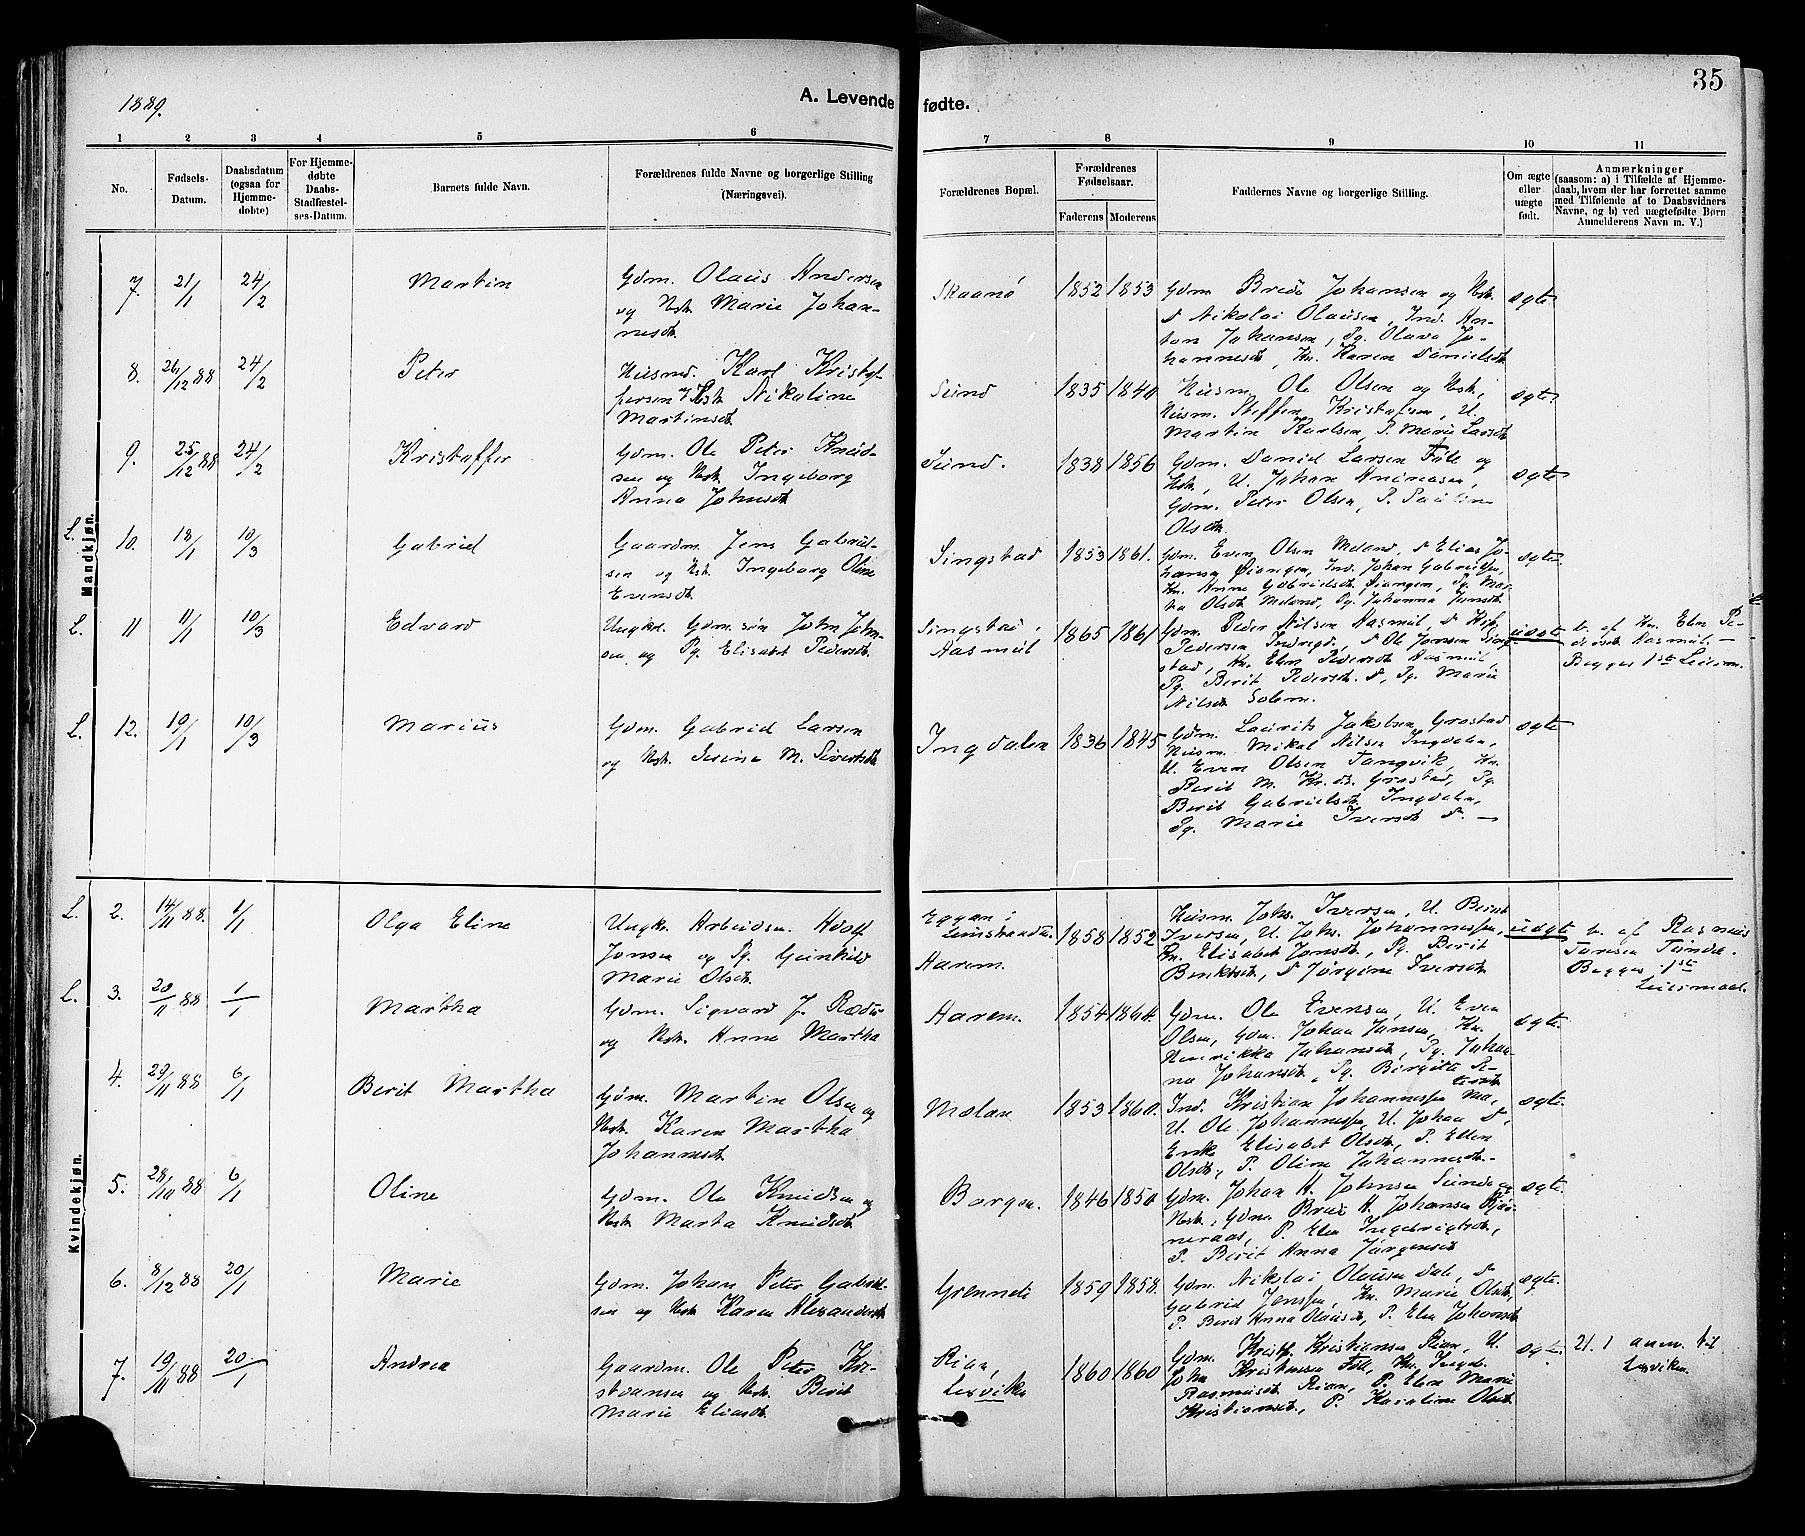 35
1889.
A. Levende fødte.
1 2 3 4 5 6 7 8 9 10 11
No.
Fødsels-Datum.
Daabsdatum (ogsaa for Hjemmedøbte)
For Hjemmedøbte Daabs-Stadfæstelses-Datum.
Barnets fulde Navn.
Forældrenes fulde Navne og borgerlige Stilling (Næringsvei).
Forældrenes Bopæl.
Forældrenes Fødselsaar.
Faderens Moderens
Faddernes Navne og borgerlige Stilling.
Om ægte eller uægte født.
Anmærkninger
(saasom: a) i Tilfælde af Hjemmedaab, hvem der har forrettet samme med Tilføiende af to Daabsvidners Navne, og b) ved uægtefødte Børn Anmelderens Navn m. V.)
Mandkjøn.
7. 21/1 24/2 Martin
Gdm. Olaus Andersen
og Hstr. Marie Johan-
nesdt.
Skaanø 1852 1853
Gdm Brede Johansen og Hstr.
S Nikolai Olausen, Ind. An-
ton Johansen, Pg. Olava Jo-
hannesdt, Kn. Karen Danielsdt
ægte
8. 26/12 88 24/2 Peter
Husmd. Karl Kristof-
fersen og Hstr Nikoline
Martinsdt.
Sund 1835 1840
Husm Ole Olsen og Hstr,
Husm. Steffen Kristofsen, U.
Martin Karlsen, P. Marie Larsdt
ægte
9. 25/12 88 24/2 Kristoffer
Gdm. Ole Peter Knud-
sen og Hstr Ingeborg
Anna Johnsdt
Sund. 1838 1856
Gdm. Daniel Larsen og
Hstr, U. Johan Andreasen,
Gdm. Peter Olsen, P. Pauline
Olsdt
ægte
L. 10. 18/1 10/3 Gabriel
Gaardm. Jens Gabriel-
sen og Hstr. Ingeborg Oline
Evensdt.
Singstad 1853 1861.
Gdm. Even Olsen Meland, S Elias Jo-
hansen Øiangen, Ind. Johan Gabrielsen,
Kn. Anne Gabrielsdt Øiangen, Pg. Mar-
ta Olsdt Meland, Pg. Johanna Jonsdt
ægte.
L. 11 11/1 10/3 Edvard
Ungkl. Gdm. søn John John-
sen og Pg. Elisabet Pedersdt.
Singstad,
Aasmul 1865 1861
Gdm. Peder Nilsen Aasmul, S
Pedersen S Ole Jonsen Sing-
stad, Kn. Elen Pedersdt Aasmul,
Pg. Berit Pedersdt. S, Pg. Marie
Nilsdt Solem.
uægte
b. af Kn. Elen Pe-
dersdt Aasmul. —
Begges 1ste Leierm.
L. 12. 19/1 10/3 Marius
Gdm. Gabriel Larsen
og Hstr. Serine M. Sivertsdt
Ingdalen 1836 1845
Gdm. Laurits Jakobsen Grostad
Husm. Mikal Nilsen Ingdalen,
U. Even Olsen Tangvik, Kn.
Berit M. Grostad, Pg.
Berit Gabrielsdt Ingdalen,
Pg. Marie Iversdt S. —
ægte
Kvindekjøn.
L. 2. 14/11 88. 1/1 Olga Eline
Ungkr. Arbeidsm. Adolf
Jonsen og Pg. Gunhild
Marie Olsdt.
Eggan i
Leinstranden
Aarem. 1858 1852
Husm. Johs. Iversen, U. Berint
Iversen, U. Johs. Johannessen,
Kn. Elisabet Jonsdt, Pg. Berit
Benktsdt, S Jørgine Iversdt
uægte
b. af Rasmus
Toresen Tunda.
Begges 1ste
Leiermaal.
L. 3. 20/11 88 1/1 Martha
Gdm. Sigvard J. Rædes
og Hstr. Anne Martha
Aarem. 1854 1864.
Gdm. Ole Evensen, U. Even
Olsen, Gdm. Johan Jonsen, Kn.
Henrikka Johansdt, Pg. Johan-
na Johansdt, Pg. Birgitte Pe-
tersdt
ægte.
4. 29/11 88 6/1 Berit Martha
Gdm. Martin Olsen og
Hstr. Karen Martha
Johannesdt.
Melan 1853 1860.
Ind. Kristian Johannessen
U. Ole Johannessen, U. Johan S,
Enke Elisabet Olsdt, P. Ellen
Olsdt, P. Oline Johannesdt.
ægte.
5. 28/10 88 6/1 Oline
Gdm. Ole Knudsen og
Hstr Marta Knudsdt
Borgen. 1846 1850.
Gdm. Johan H. Johnsen Sunde og
Hstr, Gdm. Brede H. Johansen Bjør-
neraas, P. Elen Ingebrigtsdt,
P. Berit Anna Jørgensdt
ægte.
6. 8/12 88 20/1 Marie
Gdm. Johan Peter Gabriel-
sen og Hstr. Karen Alexandersdt
Grønneli 1859 1858.
Gdm. Nikolai Olausen Dal, S
Gabriel Jenssen, Kn. Marie Olsdt,
P. Berit Anna Olausdt, P. Elen Johansdt
ægte.
7. 19/11 88 20/1 Andrea
Gaardm. Ole Peter Kri-
stiansen og Hstr. Berit
Marie Eliasdt.
Rian,
Lexviken 1860 1860
Gdm. Kristf. Kristiansen Rian, U.
Johs. Kristiansen Kn. Ingeb.
Rasmusdt Rian, P. Elen Marie
Kristiansdt, P. Karoline Olsdt
ægte.
21. 1 anm. til
Lexviken.